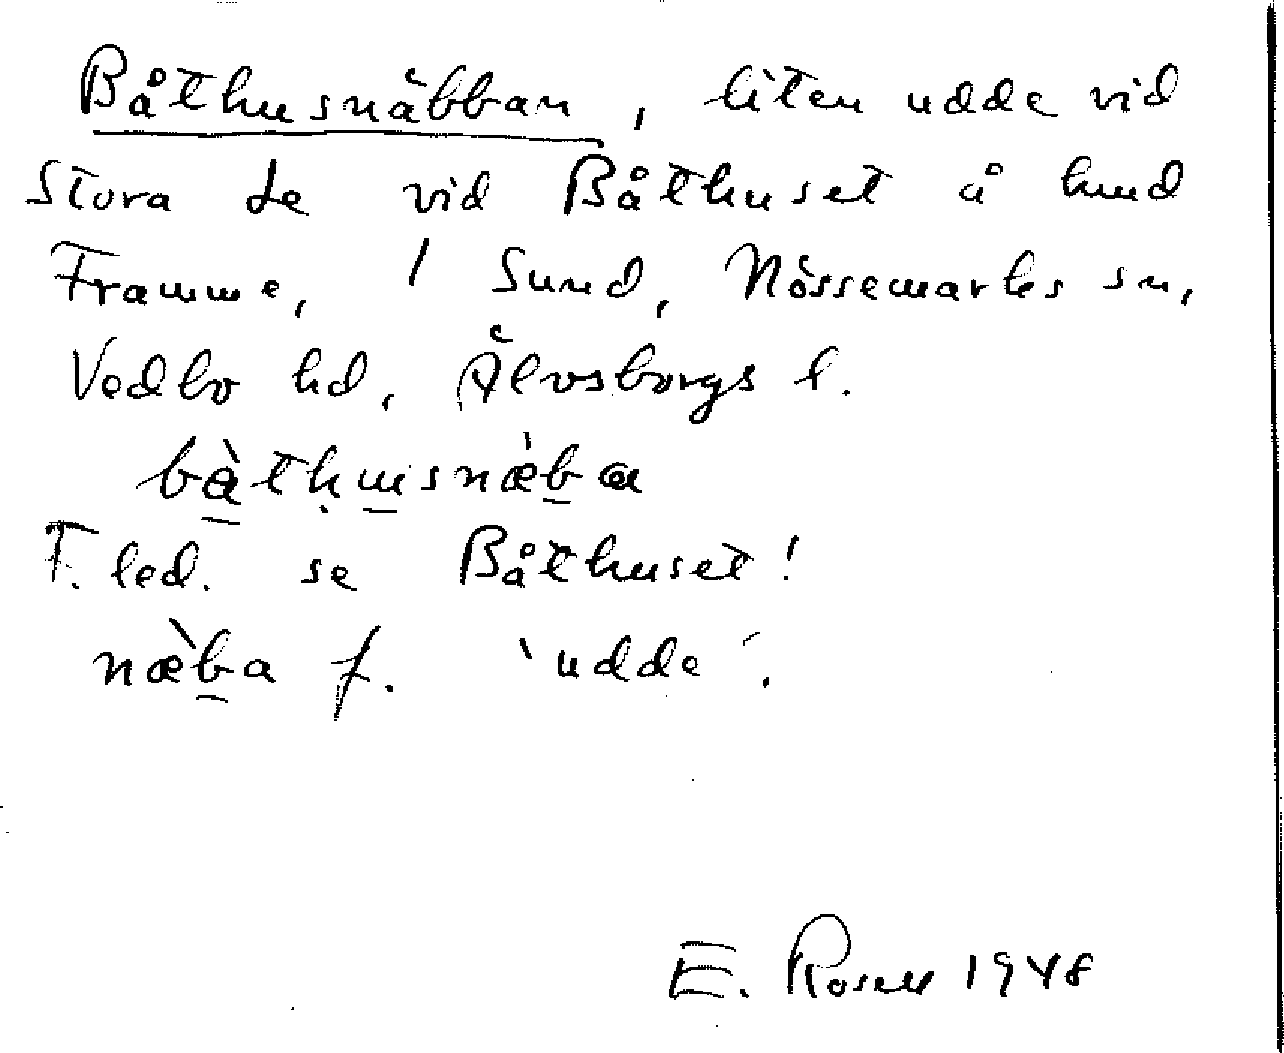 Båthusnäbban, liten udde vid
Stora Le vid Båthuset å hmd
Framme, 1 Sund, Nössemarks sn,
Vedbo hd, Älvsborgs l.
bàthɯsnæ̀ba
F. led. se Båthuset!
næ̀ba f. 'udde'.
E. Rosell 1948